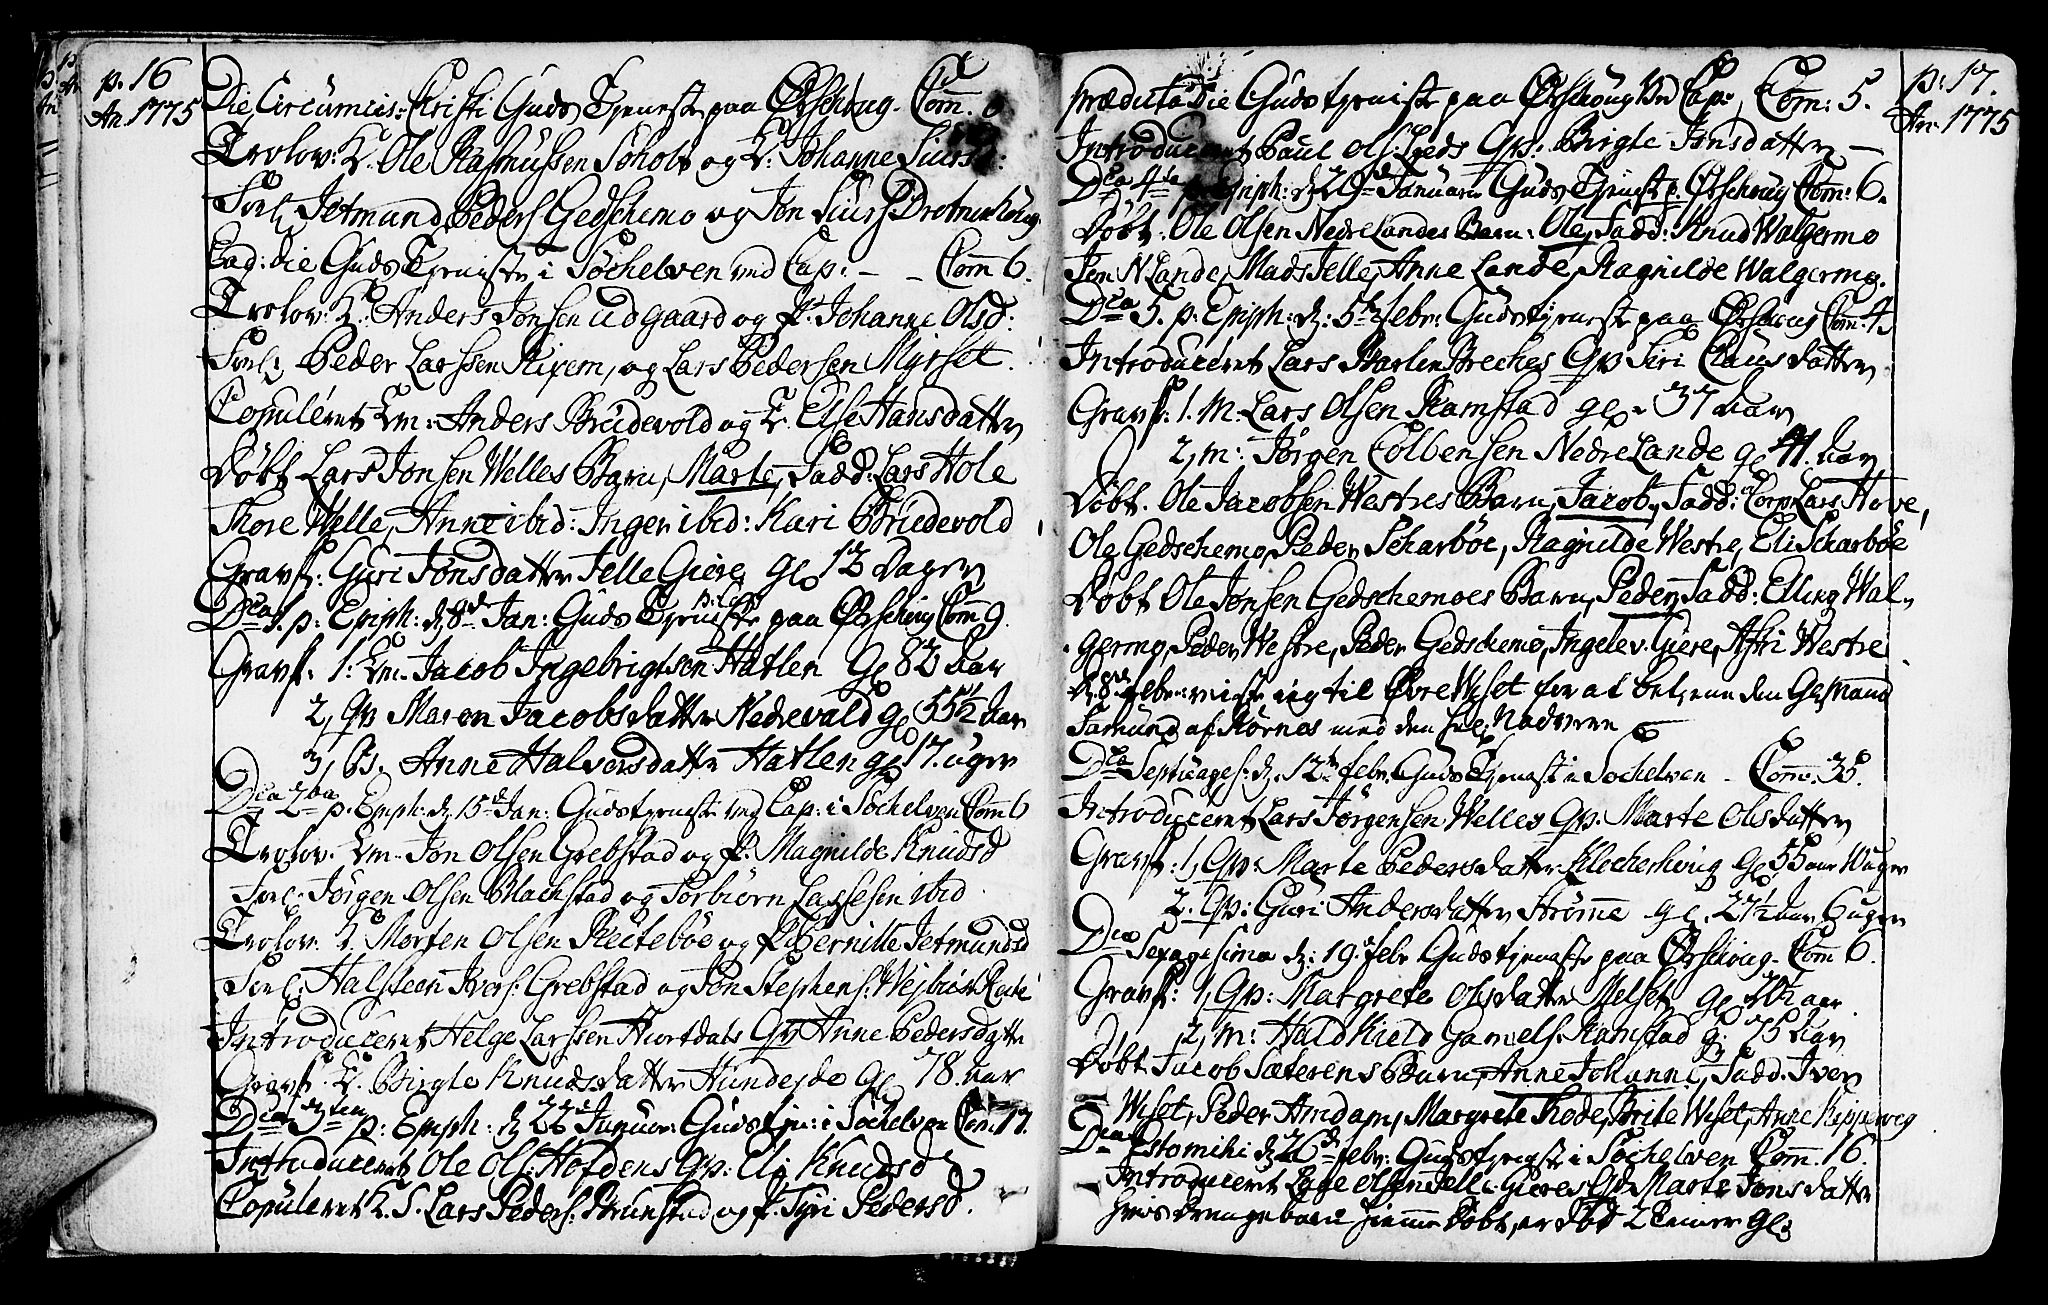 p. 16
An 1775
Die Circumcis: Christi Guds Tjeneste paa Ørschoug. Com. 6
Trolov: K. Ole Rasmussen Søholt og K: Johanne Siursd:
Forl. Jetmund Peders Gedschemo og Jon Siurs Drotninhoug
Ead: die Guds Tjeneste i Søchelven ved Cap: - - Com 6.
Trolov: K. Anders Jonsen Udgaard og p. Johanne Olsd:
Forl. Peder Larssen Rixem, og Lars Pedersen Myrset.
Copuleret Em: Anders Brudevold og K. Else Hansdatter
Døbt Lars Jonsen Welles Barn, Marte, Fadd: Lars Hole
Thore Welle, Anne ibid: Inger ibid: Kari Brudevold
Gravf: Guri Jonsdatter Jelle Giere gl 12 Dager
Dca 1. p: Epiph: d 8de Jan: Guds Tjeneste paa Ørschoug Com 9.
Gravf. 1. Em. Jacob Ingebrigtsen Hatlen Gl 82 Aar
2, Qv Maren Jacobsdatter Nedrevald gl 55½ Aar
3, B. Anne Halvorsdatter Hatlen gl 17. uger
Dca 2da p. Epiph: d. 15d Jan: Gudstjeneste ved Cap: i Søchelven Com 6
Trolov. Em. Jon Olsen Grebstad og p. Magnilde Knudsd
Forl. Jørgen Olsen Blachstad og Torbiørn Lassesen ibid.
Trolov. K. Morten Olsen Ruteboe og P Pernille Jetmundsd
Forl. Halsteen Ivers: Grebstad og Jon Stephens:
Introduceret Helge Larssen Hurtdals Qv Anne Pedersdatter
Gravf. K. Birgte Knudsdatter Hundejde gl 78 aar
Dca 3tia p: Epiph: d 22d Januar: Guds tjen: i Søchelven Com: 17.
Introduceret Ole Ols: Hofdens Qv: Eli Knudsd
Copuleret K. S. Lars Peders: Brunstad og p. Syri Pedersd.
p: 17.
An. 1775
prædicta Die Gudstjeniste paa Ørschoug ved Cap: Com: 5.
Introduceret Paul Ols: Qv: Birgte Jonsdatter -
Dca 4ta p Epiph: d 29d Januarii Guds Tjeneste p. Ørschoug Com: 6.
Døbt. Ole Olsen Nedre Landes Barn: Ole, Fadd: Knud Walgermo
Jon N Lande, Mads Jelle, Anne Lande, Ragnilde Walgermo.
Dca 5. p. Epiph: d: 5te febr: Gudstjeneste paa Ørschoug Com: 4.
Introduceret Lars Barlin Breches Qv Siri Clausdatter
Gravf: 1. M: Lars Olsen Ramstad gl. 37 Aar
2, m: Jørgen Colbensen Nedre Lande gl 41. Aar
Døbt. Ole Jacobsen Westres Barn, Jacob, Fadd: Corp Lars Hove,
Ole Gedschemo, Peder Scharbøe, Ragnilde Westre, Eli Scharbøe
Døbt Ole Jonsen Gedschemoes Barn, Peder, Fadd: Elling Wal-
germo, Peder Westre, Peder Gedschemo, Ingelev. Giere, Astri Westre
d. 8d febr: reiste jeg til Øvre Wiset for at betjene den Gl Mand
Samund af Kornes med den hel: Nadvere
Dca Septuages: d. 12te febr. Guds Tjeneste i Søchelven - Com. 35.
Introduceret Lars Jørgensen Welles Qv: Marte Olsdatter
Gravf: 1, Qv: Marte Pedersdatter Klocherhoug gl 55 aar
2. Qv: Guri Andersdatter Strømme gl. 27½ Aar
Dca Sexagesima d: 19d febr Gudstjeneste paa Ørschoug - Com 6.
Gravf: 1, Qv: Margrete Olsdatter Melset gl
2, m: Hald Kield Gamels: Ramstad gl 75 Aar
Døbt Jacob Sæterens Barn, Anne Johanne, Fadd. Iver
Wiset, Peder Amdam, Margrete Thode, Brite Wiset, Anne Kippervig
Dca Estomihi d 26d febr: Gudstjeneste i Søchelven Com. 16.
Introduceret Lage Olsen Jelle Gieres Qv Marte Jonsdatter
hvis Drengebarn hiemme døbt, er død